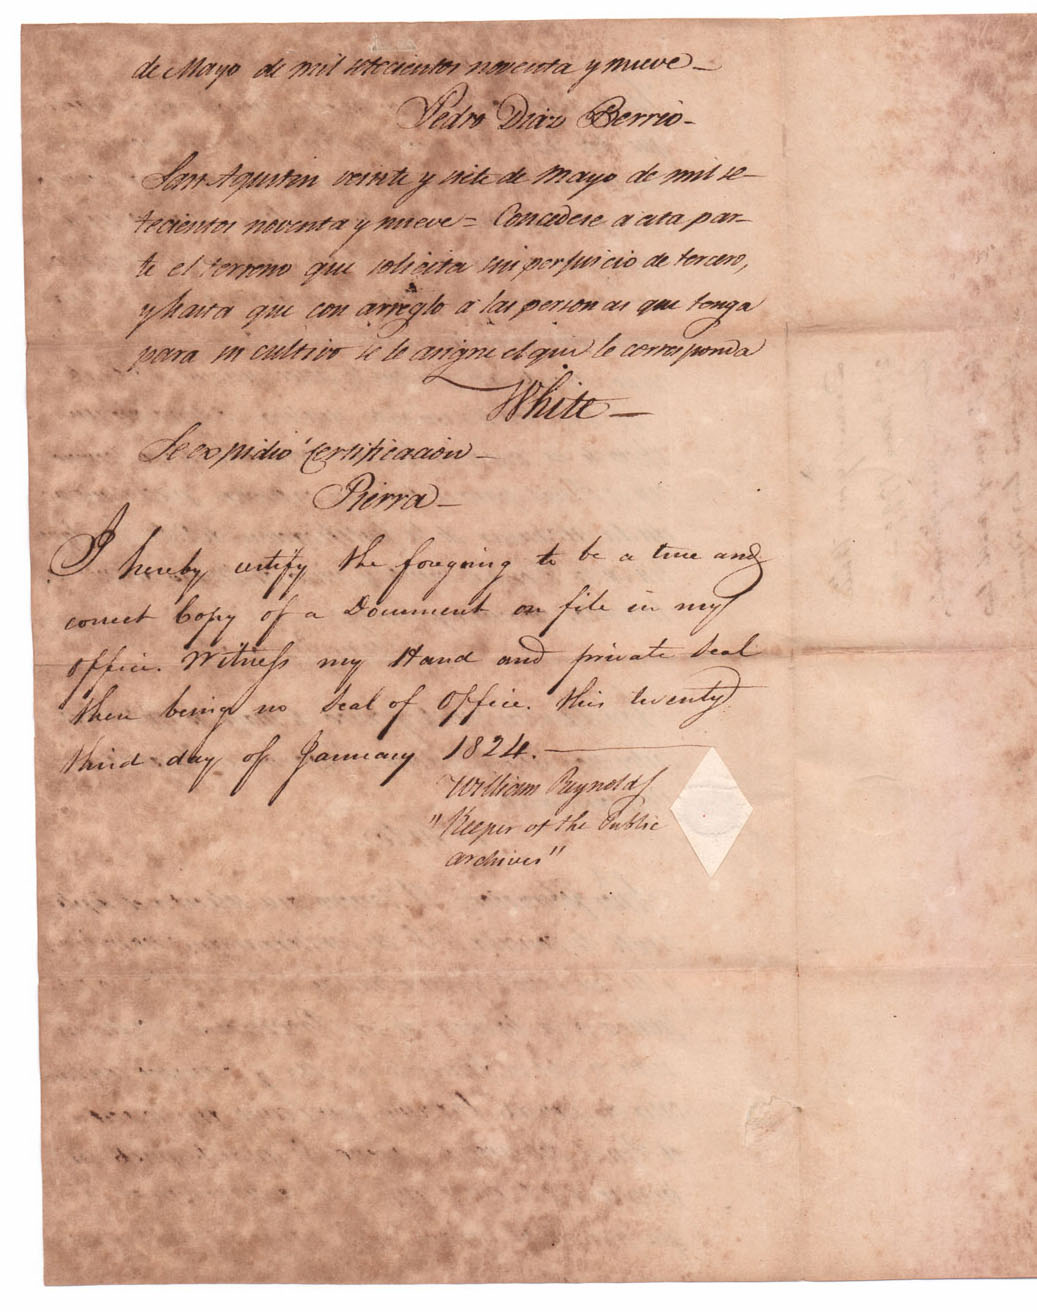 de Mayo de mil setecientos noventa y nueve —
Pedro Diaz Berrio —
San Agustin veinte y siete de Mayo de mil se-
tecientos noventa y nueve = Concedese a esta par-
te el terreno que solicita sin perjuicio de tercero,
y hasta que con arreglo á las personas que tenga
para su cultivo se le asigne el que le corresponda
White —
Se expidió certificacion —
Pierra —
I hereby certify the foregoing to be a true and
correct Copy of a Document on file in my
Office. Witness my Hand and private Seal
there being no Seal of Office. this twenty
third day of January 1824. —
William Reynolds
"Keeper of the Public
archives"